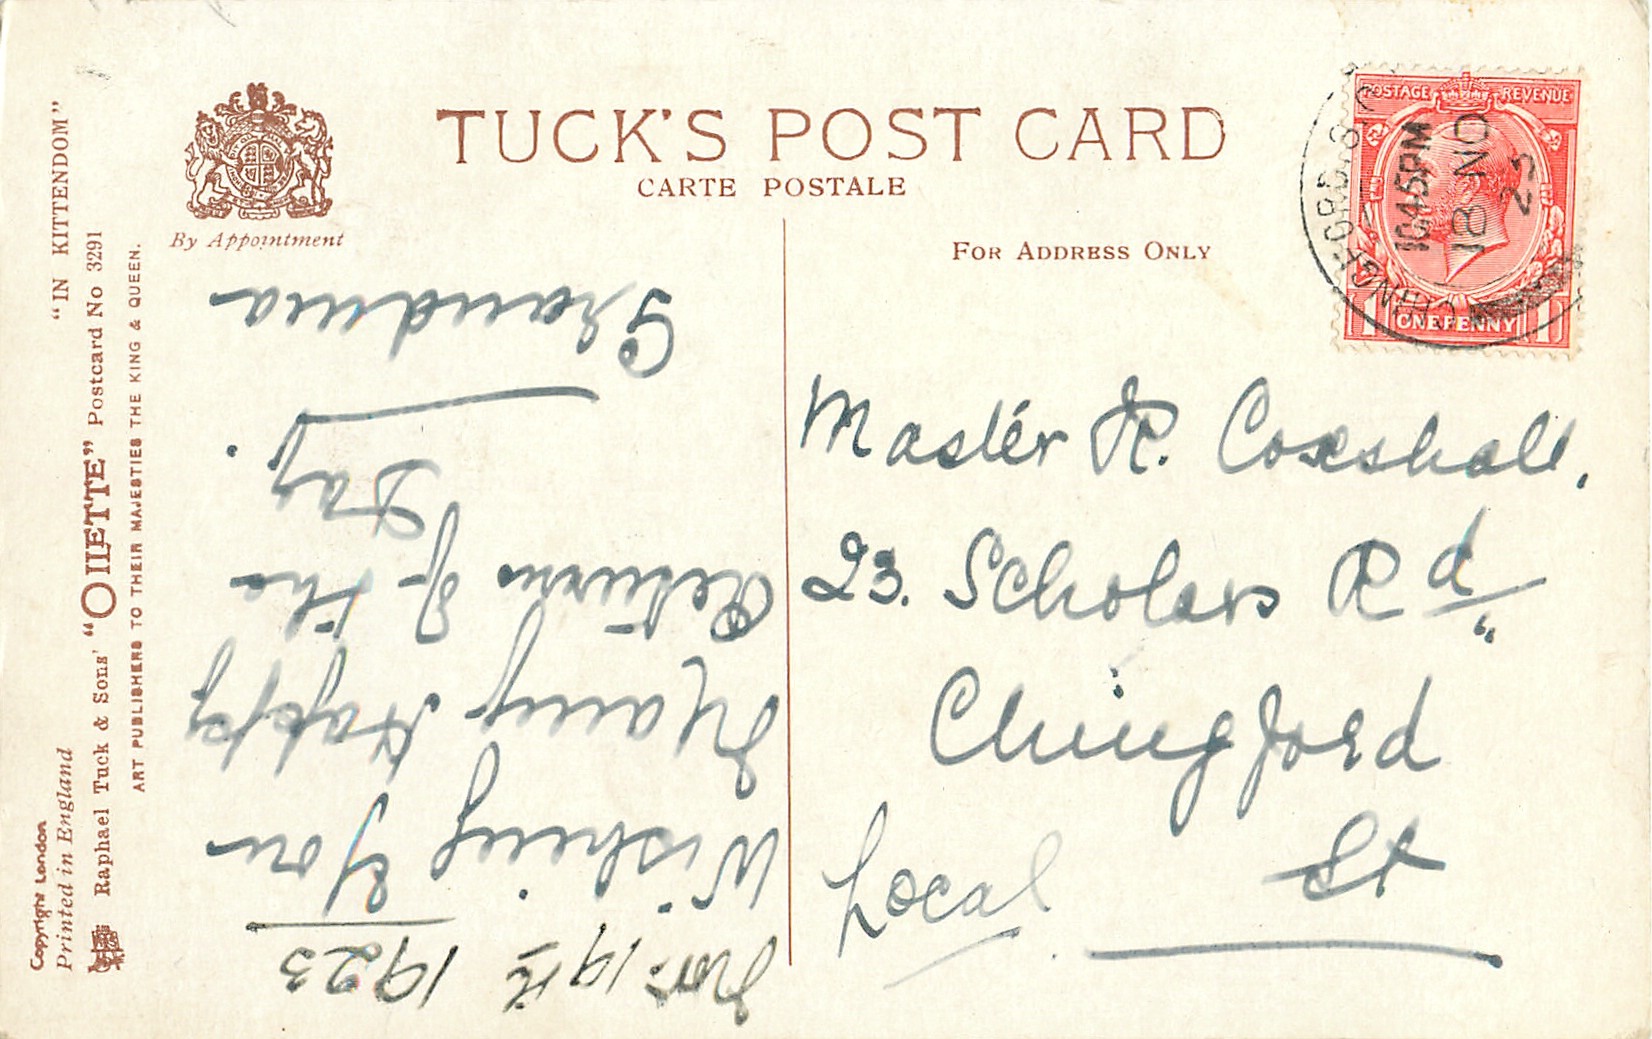 TUCK'S POST CARD
CARTE POSTALE
By Appointment
FOR ADDRESS ONLY
POSTAGE REVENUE
ONE PENNY
CHINGFORD. S.O.
10.45PM
18 NO
23
Master R. Coxshall,
23. Scholars Rd
Chingford
St
Local
Nov: 19th 1923
Wishing You
Many Happy
Returns of the
Day.
Grandma
"IN KITTENDOM"
Raphael Tuck & Sons' "OILETTE" Postcard No 3291
ART PUBLISHERS TO THEIR MAJESTIES THE KING & QUEEN.
Copyright London
Printed in England